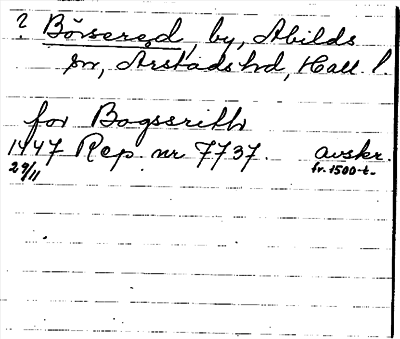 ? Börsered, by, Abilds
sn, Årstads hd, Hall. l.
for Bogserith
1447 Rep. nr 7737. avskr.
29/11 fr. 1500-t.